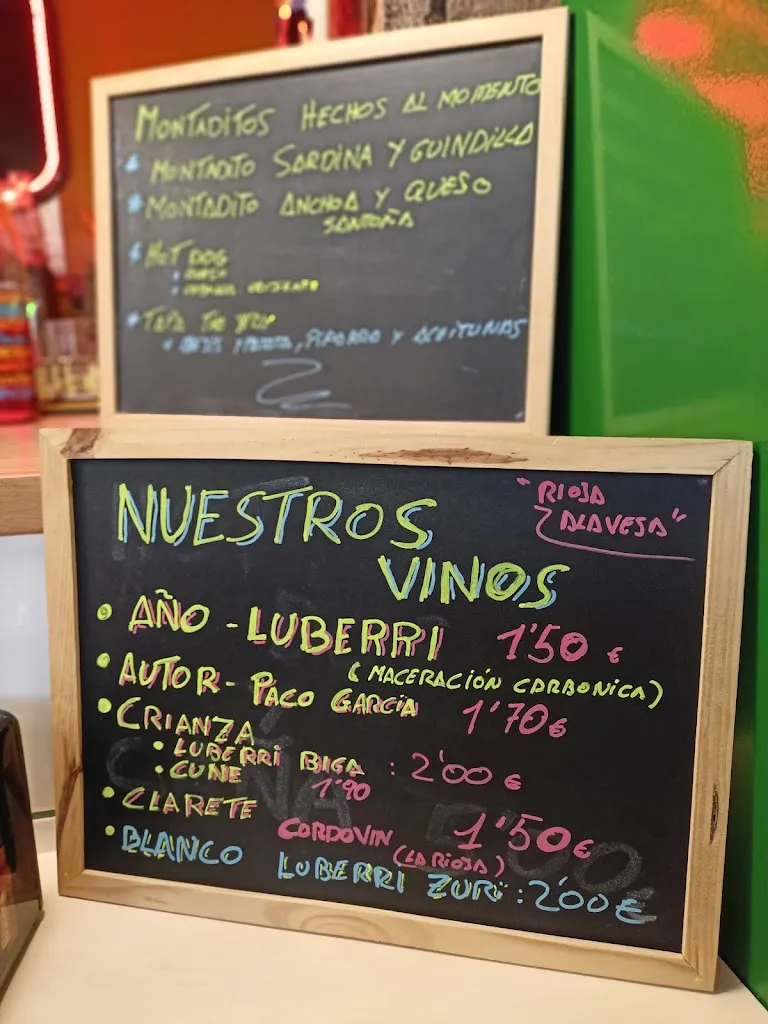 MONTADITOS HECHOS AL MOMENTO
* MONTADITO SARDINA Y GUINDILLA
* MONTADITO ANCHOA Y QUESO
SANTOÑA
* HOT DOG
* TAPA
, PIPARRA Y ACEITUNAS
NUESTROS
VINOS
"RIOJA
ALAVESA"
• AÑO - LUBERRI 1'50 €
(MACERACIÓN CARBONICA)
• AUTOR - PACO GARCÍA 1'70€
• CRIANZA
• LUBERRI BIGA : 2'00 €
• CUNE 1'90
• CLARETE
CORDOVIN 1'50€
(LA RIOJA)
• BLANCO LUBERRI ZURI : 2'00€